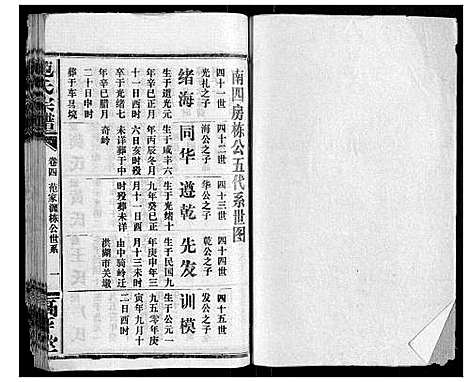 南四房栋公五代系世图
四十一世
光礼之子
绪海
生于道光元
年辛巳十一
十一日酉时
卒于光绪七
年辛巳腊月
二十日申时
葬于车马境
四十二世
海公之子
同华
生于咸丰六
年丙辰冬月
六日亥时殁
未详葬于中
奇岭
四十三世
华公之子
遵乾
生于光绪十
九年癸巳正
月十一日申
时殁葬未详
四十四世
乾公之子
先发
生于民国九
年庚申年三
月十三未时
由中骑岭迁
洪湖市关墩
四十五世
发公之子
训模
生于公元一
九五零年庚
寅年九月十
二日酉时
卷四
范家渊栋公世系
一